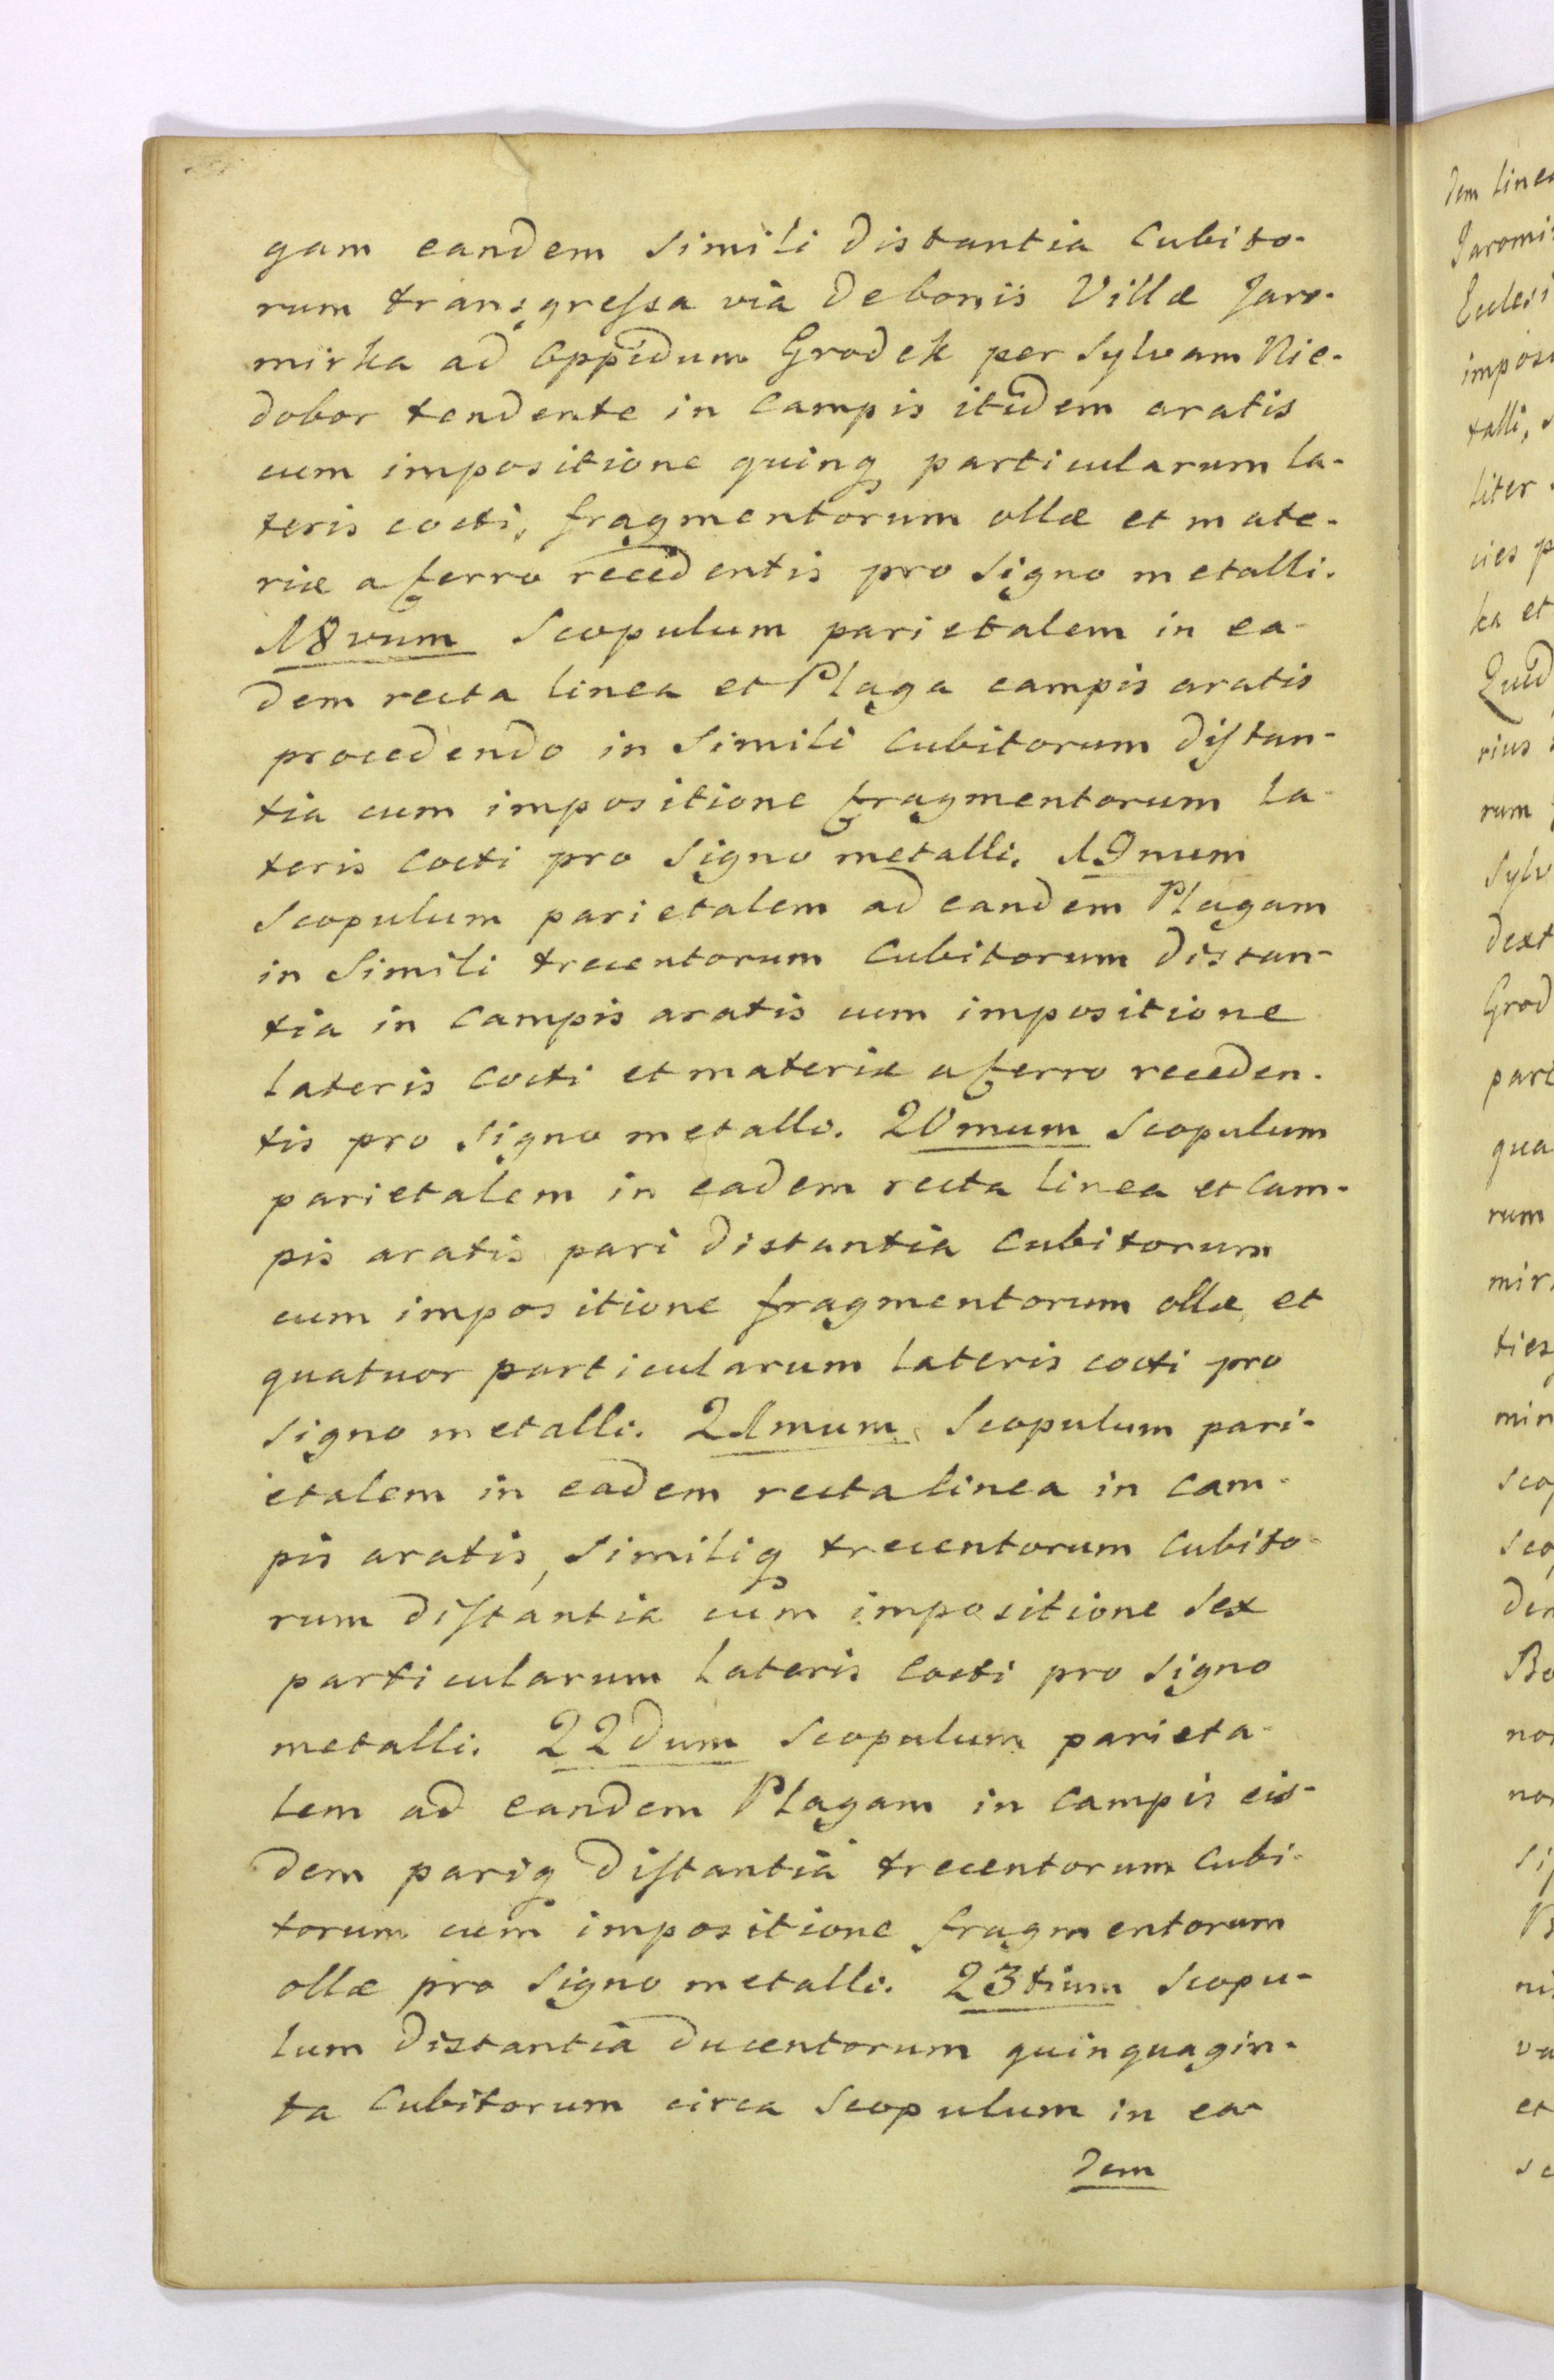 gam eandem simili distantia Cubito-
rum transgreſsa via de bonis Villæ Jaro-
mirka ad Oppidum Grodek per Sylvam Nie-
dobor tendente in Campis itidem aratis
cum impositione quinq particularum la-
teris cocti, fragmentorum ollæ et mate-
riæ a ferro recedentis pro signo metalli.
18vum Scopulum parietalem in ea-
dem recta linea et Plaga campis aratis
procedendo in simili Cubitorum diſtan-
tia cum impositione fragmentorum la-
teris cocti pro signo metalli. 19num
Scopulum parietalem ad eandem Plagam
in simili trecentorum Cubitorum distan-
tia in Campis aratis cum impositione
lateris cocti et materiæ a ferro receden-
tis pro signo metalli. 20mum Scopulum
parietalem in eadem recta linea et Cam-
pis aratis pari distantia Cubitorum
cum impositione fragmentorum ollæ et
quatuor particularum lateris cocti pro
signo metalli. 21mum Scopulum pari-
etalem in eadem recta linea in Cam-
pis aratis, similiq trecentorum Cubito-
rum diſtantia cum impositione sex
particularum lateris Cocti pro signo
metalli. 22dum Scopulum parieta-
lem ad eandem Plagam in Campis eis-
dem pariq diſtantia trecentorum Cubi-
torum cum impositione fragmentorum
ollæ pro signo metalli. 23tium Scopu-
lum distantia ducentorum quinquagin-
ta Cubitorum circa Scopulum in ea-
dem
dem linea
Jaromi
Ecclesi
impos
talli,
liter
cies p
ka et
Quid
rius
rum
Sylv
dext
Grod
part
qua
rum
mir
ties
min
sco
sco
den
Bo
no
no
si
ni
va
et
sc